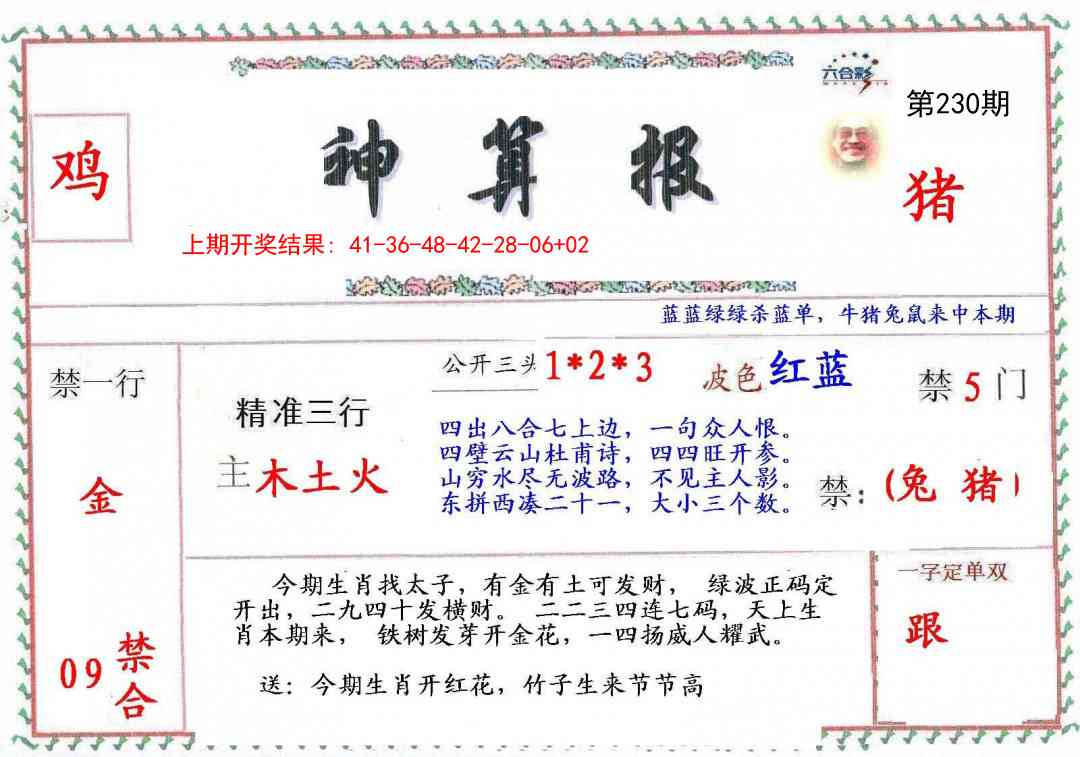 六合彩
第230期
鸡
神算报
猪
上期开奖结果：41-36-48-42-28-06+02
蓝蓝绿绿杀蓝单，牛猪兔鼠来中本期
禁一行
金
09
禁合
精准三行
主木土火
公开三头1*2*3
波色红蓝
禁5门
四出八合七上边，一句众人恨。
四壁云山杜甫诗，四四旺开参。
山穷水尽无波路，不见主人影。
东拼西凑二十一，大小三个数。
禁：(兔 猪)
今期生肖找太子，有金有土可发财， 绿波正码定
开出，二九四十发横财。 二二三四连七码，天上生
肖本期来， 铁树发芽开金花，一四扬威人耀武。
送：今期生肖开红花，竹子生来节节高
一字定单双
跟